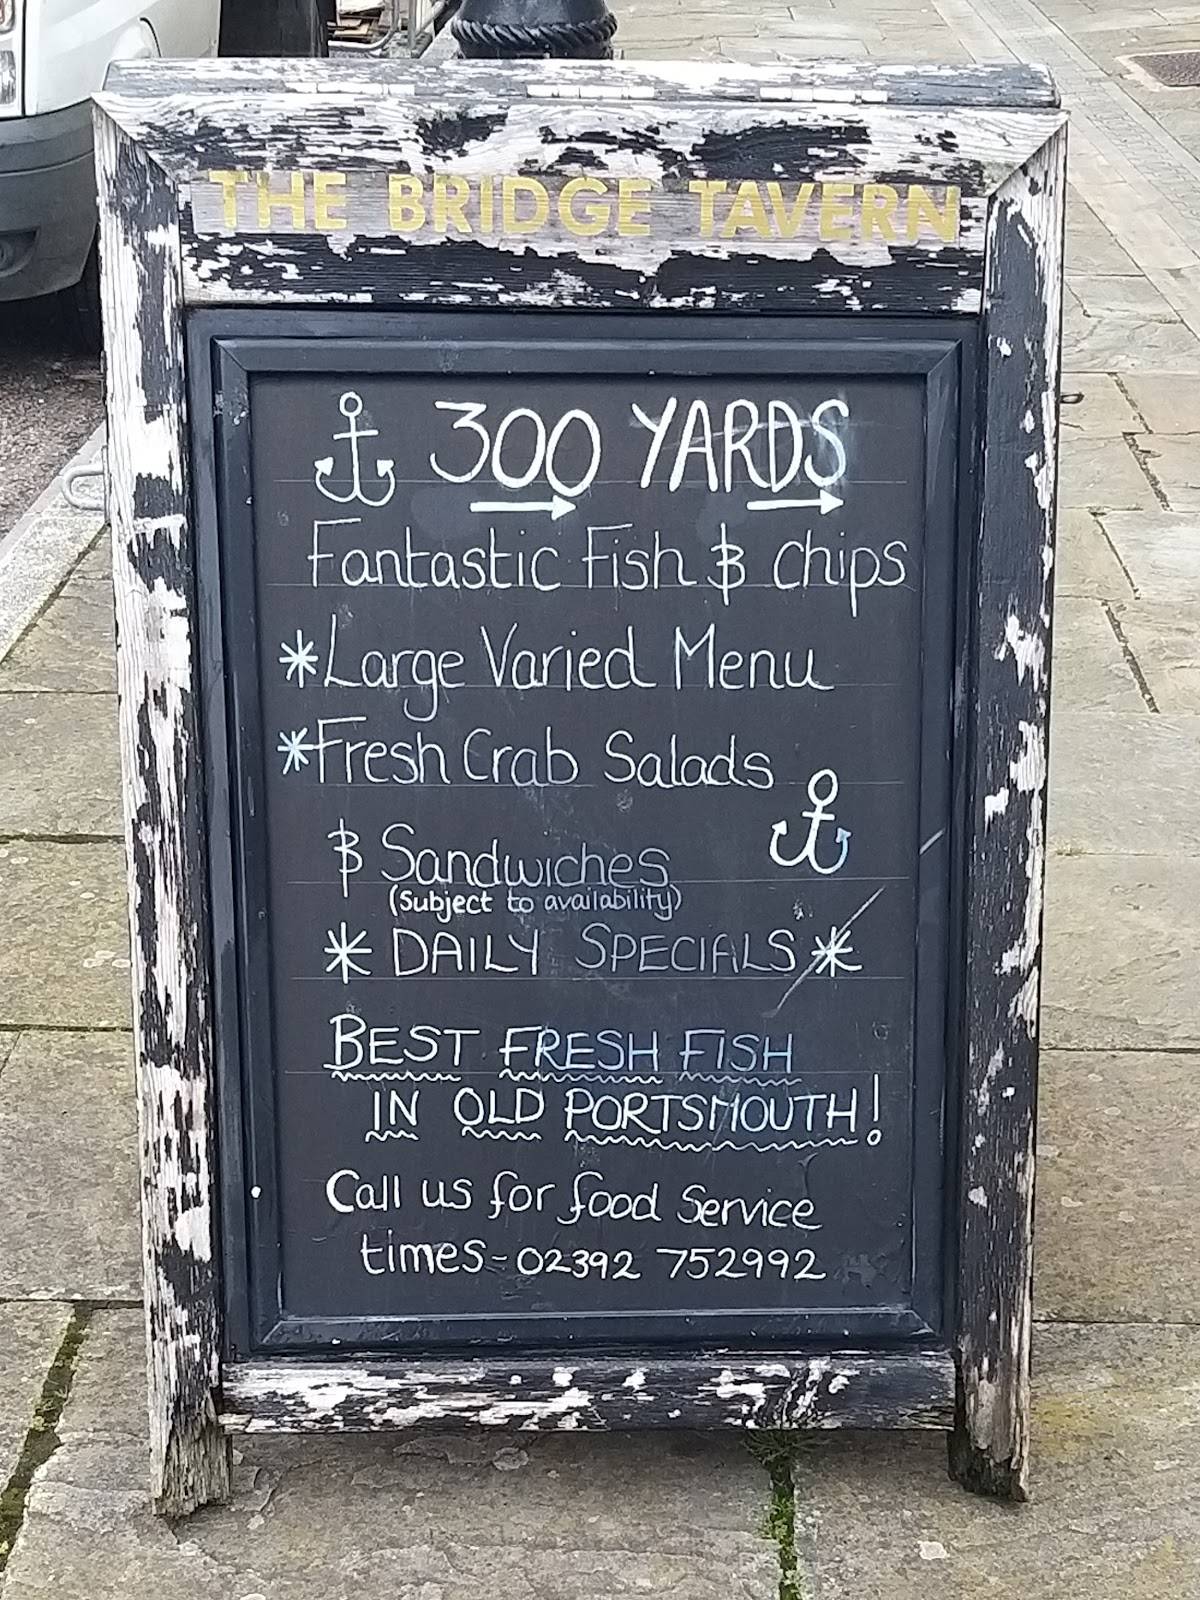 THE BRIDGE TAVERN
300 YARDS
Fantastic Fish & Chips
*Large Varied Menu
*Fresh Crab Salads
& Sandwiches
(Subject to availability)
* DAILY SPECIALS *
BEST FRESH FISH
IN OLD PORTSMOUTH!
Call us for food Service
times - 02392 752992